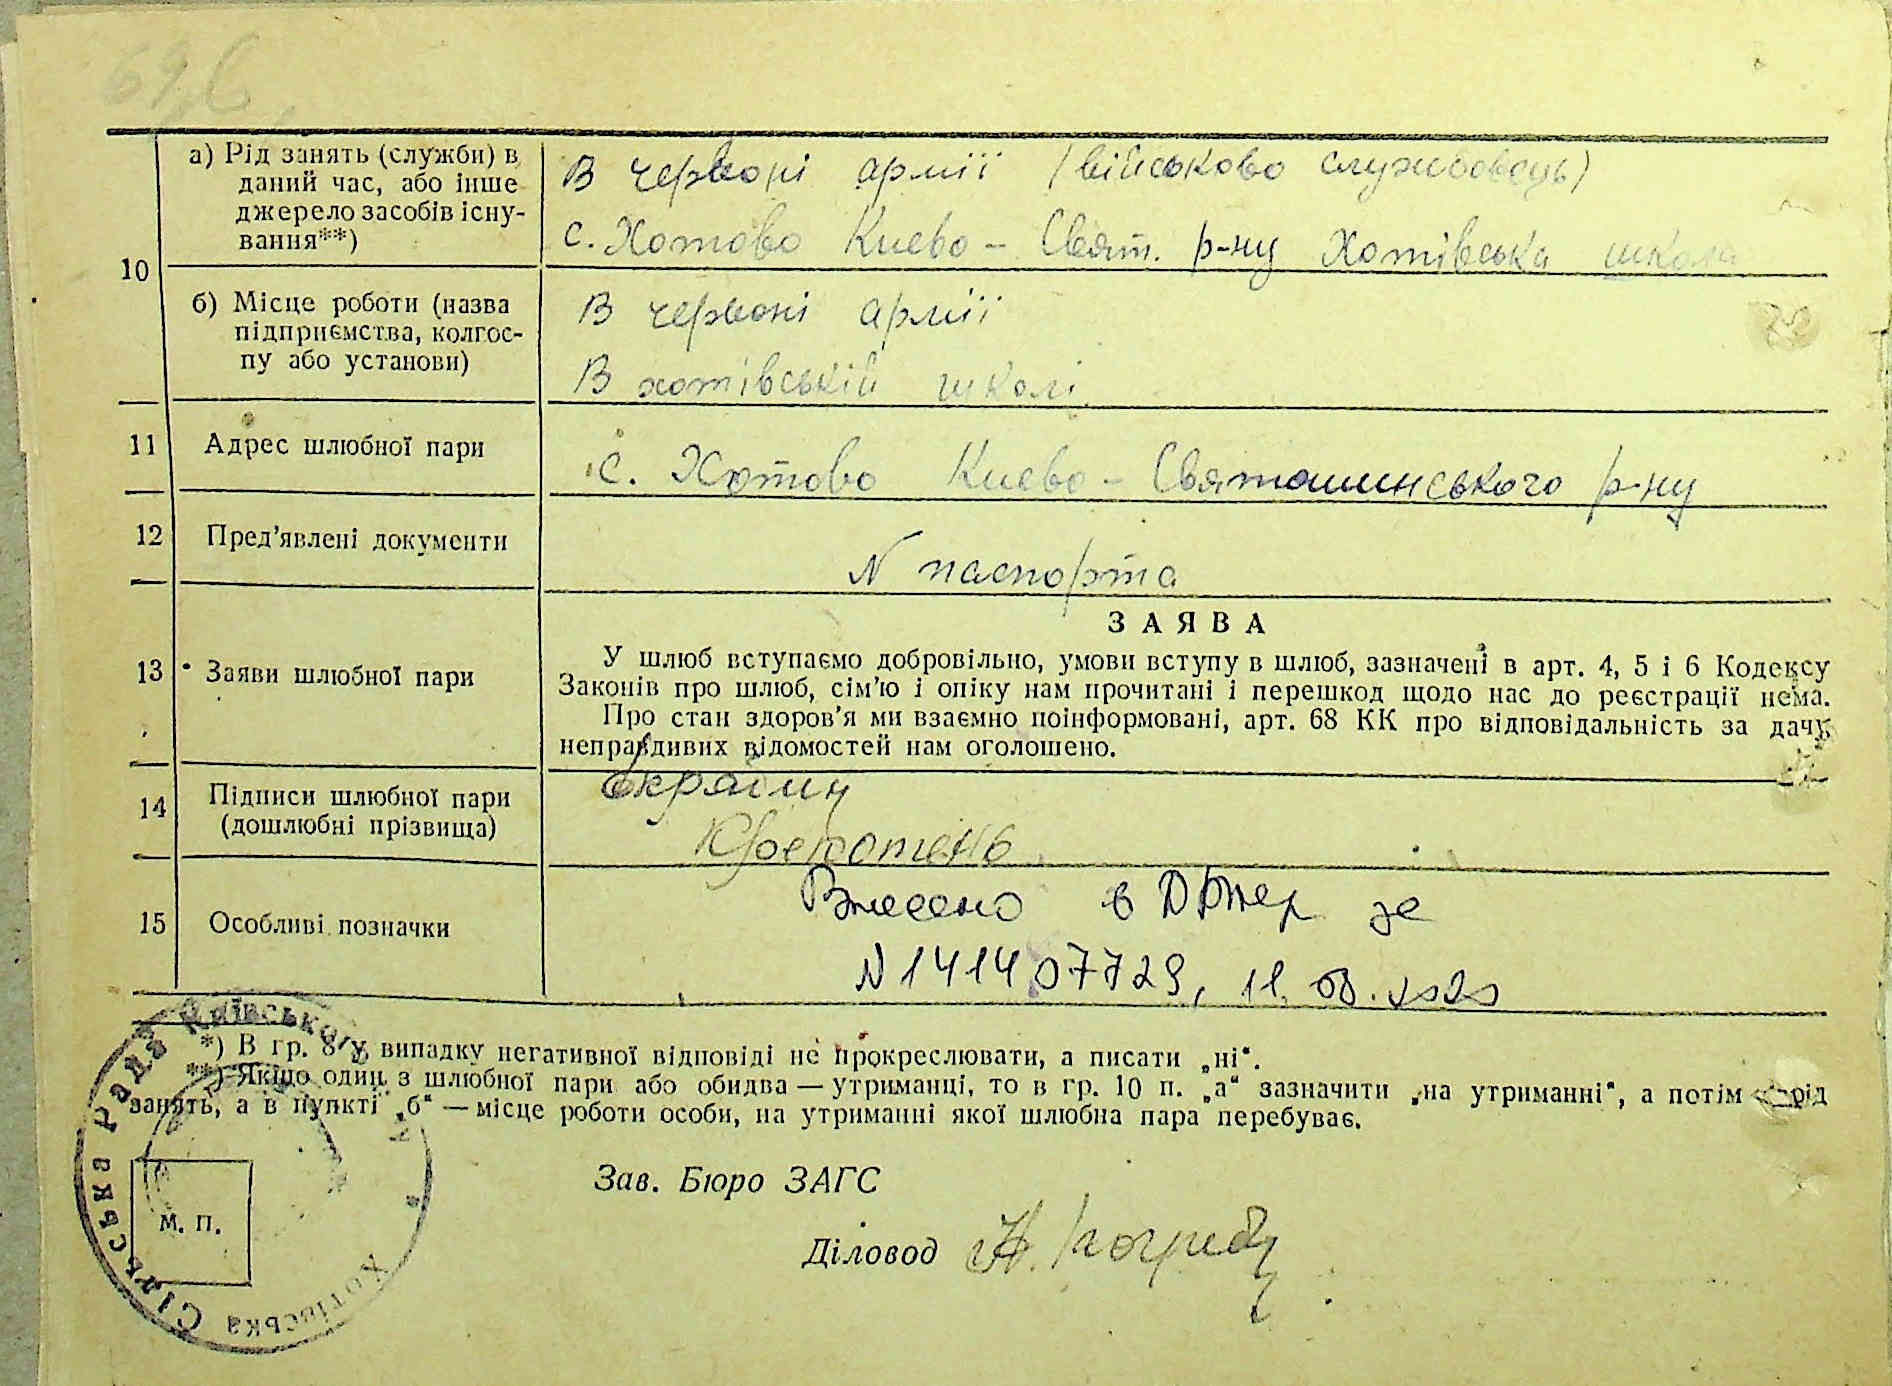 10
а) Рід занять (служби) в
даний час, або інше
джерело засобів існу-
вання**)
В червоні армії (військово службовець)
с. Хотово Києво - Свят. р-ну Хотівська школа
б) Місце роботи (назва
підприємства, колгос-
пу або установи)
В червоні армії
В хотівській школі
11
Адрес шлюбної пари
с. Хотово Києво - Святошинського р-ну
12
Пред'явлені документи
N паспорта
13
Заяви шлюбної пари
ЗАЯВА
У шлюб вступаємо добровільно, умови вступу в шлюб, зазначені в арт. 4, 5 і 6 Кодексу
Законів про шлюб, сім'ю і опіку нам прочитані і перешкод щодо нас до реєстрації нема.
Про стан здоров'я ми взаємно поінформовані, арт. 68 КК про відповідальність за дачу
неправдивих відомостей нам оголошено.
14
Підписи шлюбної пари
(дошлюбні прізвища)
15
Особливі позначки
Внесено в ДРАЦС за
N 141407729, 11.08.2020
*) В гр. 8 у випадку негативної відповіді не прокреслювати, а писати „ні“.
**) Якщо один з шлюбної пари або обидва — утриманці, то в гр. 10 п. „а“ зазначити „на утриманні“, а потім рід
занять, а в пункті „б“ — місце роботи особи, на утриманні якої шлюбна пара перебуває.
Зав. Бюро ЗАГС
Діловод
М. П.
Хотівська Сільська Рада Київського